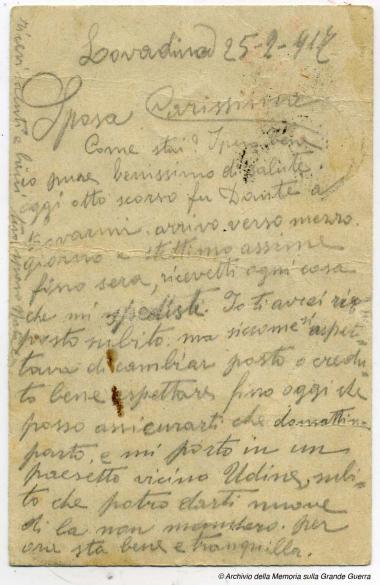 Lovadina 25-2-917
Sposa Carissima
Come stai? Spero bene,
io pure benissimo di salute.
oggi otto scorso fu Dante a
trovarmi. arrivo verso mezzo.
giorno e stettimo assime
fino sera, ricevetti ogni cosa
che mi spedisti. Io ti avrei ris=
posto subito. ma siccome si aspet=
tava di cambiar posto o credu=
to bene aspettare fino oggi che
posso assicurarti che domattina
parto, e mi porto in un
paesetto vicino Udine, subi=
to che potro darti nuove
di la non manchero. per
ora sta bene e tranquilla.
ricevi saluti e baci
© Archivio della Memoria sulla Grande Guerra